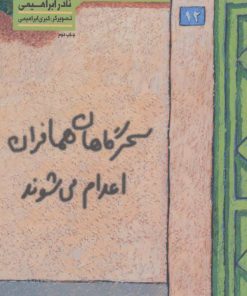 نادر ابراهیمی
تصویرگر: کبری ابراهیمی
چاپ دوم
۱۲
سحرگاهان همافران
اعدام می‌شوند